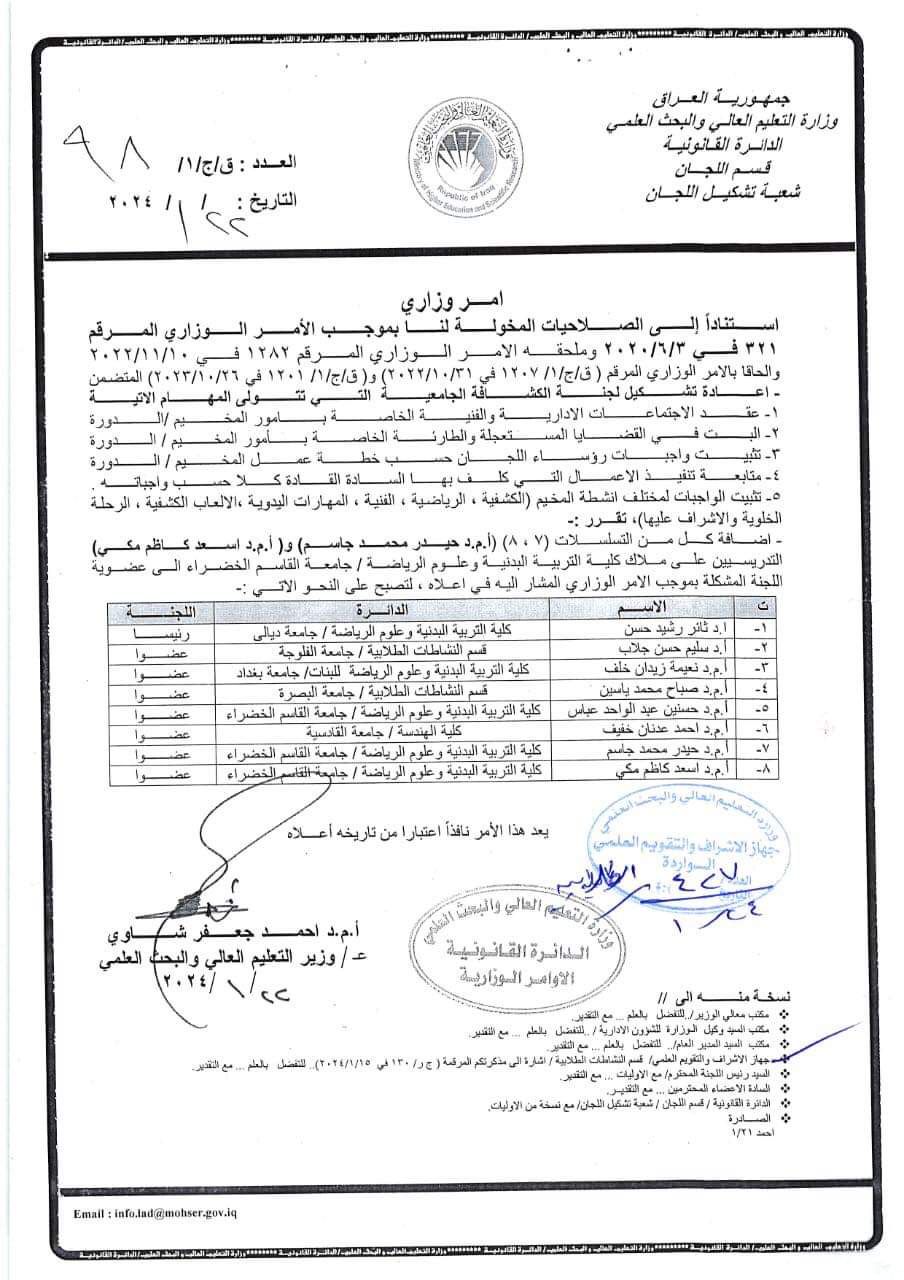 وزارة التعليم العالي و البحث العلمي / الدائرة القانونية ********* وزارة التعليم العالي و البحث العلمي / الدائرة القانونية ********* وزارة التعليم العالي و البحث العلمي / الدائرة القانونية
جمهورية العراق
وزارة التعليم العالي والبحث العلمي
الدائرة القانونية
قسم اللجان
شعبة تشكيل اللجان
وزارة التعليم العالي والبحث العلمي
Republic of Iraq
Ministry of Higher Education and Scientific Research
العدد : ق/ج/١/ ٩٨
التاريخ : ٢٢ / ١ / ٢٠٢٤
امر وزاري
استناداً إلى الصلاحيات المخولة لنا بموجب الأمر الوزاري المرقم
٣٢١ في ٢٠٢٠/٦/٣ وملحقه الامر الوزاري المرقم ١٢٨٢ في ٢٠٢٢/١١/١٠
والحاقا بالامر الوزاري المرقم ( ق/ج/١/ ١٢٠٧ في ٢٠٢٢/١٠/٣١) و( ق/ج/١/ ١٢٠١ في ٢٠٢٣/١٠/٢٦) المتضمن
- اعادة تشكيل لجنة الكشافة الجامعية التي تتولى المهام الاتية
١- عقد الاجتماعات الادارية والفنية الخاصة بامور المخيم /الدورة
٢- البت في القضايا المستعجلة والطارئة الخاصة بأمور المخيم / الدورة
٣- تثبيت واجبات رؤساء اللجان حسب خطة عمل المخيم / الدورة
٤- متابعة تنفيذ الاعمال التي كلف بها السادة القادة كلا حسب واجباته .
٥- تثبيت الواجبات لمختلف انشطة المخيم (الكشفية ، الرياضية ، الفنية ، المهارات اليدوية ،الالعاب الكشفية ، الرحلة
الخلوية والاشراف عليها)، تقرر :-
- اضافة كل من التسلسلات (٧ ، ٨) (أ.م.د حيدر محمد جاسم) و( أ.م.د اسعد كاظم مكي)
التدريسيين على ملاك كلية التربية البدنية وعلوم الرياضة / جامعة القاسم الخضراء الى عضوية
اللجنة المشكلة بموجب الامر الوزاري المشار اليه في اعلاه ، لتصبح على النحو الاتي :-
ت الاسم الدائرة اللجنة
١- ا.د ثائر رشيد حسن كلية التربية البدنية وعلوم الرياضة / جامعة ديالى رئيسا
٢- أ.د سليم حسن جلاب قسم النشاطات الطلابية / جامعة الفلوجة عضوا
٣- أ.م.د نعيمة زيدان خلف كلية التربية البدنية وعلوم الرياضة للبنات/ جامعة بغداد عضوا
٤- أ.م.د صباح محمد ياسين قسم النشاطات الطلابية / جامعة البصرة عضوا
٥- أ.م.د حسنين عبد الواحد عباس كلية التربية البدنية وعلوم الرياضة / جامعة القاسم الخضراء عضوا
٦- أ.م.د احمد عدنان خفيف كلية الهندسة / جامعة القادسية عضوا
٧- أ.م.د حيدر محمد جاسم كلية التربية البدنية وعلوم الرياضة / جامعة القاسم الخضراء عضوا
٨- أ.م.د اسعد كاظم مكي كلية التربية البدنية وعلوم الرياضة / جامعة القاسم الخضراء عضوا
يعد هذا الأمر نافذاً اعتبارا من تاريخه أعلاه
وزارة التعليم العالي والبحث العلمي
جهاز الاشراف والتقويم العلمي
الواردة
العدد / ٤٢٧
٢٤ / ١
وزارة التعليم العالي والبحث العلمي
الدائرة القانونية
الاوامر الوزارية
أ.م.د احمد جعفر شاوي
عـ / وزير التعليم العالي والبحث العلمي
٢٢ / ١ /٢٠٢٤
نسخة منه الى //
❖ مكتب معالي الوزير/..للتفضل بالعلم ... مع التقدير.
❖ مكتب السيد وكيل الوزارة للشؤون الادارية / ..للتفضل بالعلم ... مع التقدير.
❖ مكتب السيد المدير العام/.. للتفضل بالعلم ... مع التقدير.
❖ جهاز الاشراف والتقويم العلمي/ قسم النشاطات الطلابية / اشارة الى مذكرتكم المرقمة ( ج ر/ ١٣٠ في ٢٠٢٤/١/١٥).. للتفضل بالعلم ... مع التقدير.
❖ السيد رئيس اللجنة المحترم/ مع الاوليات ... مع التقدير.
❖ السادة الاعضاء المحترمين ... مع التقدير.
❖ الدائرة القانونية / قسم اللجان / شعبة تشكيل اللجان/ مع نسخة من الاوليات.
❖ الصادرة
احمد ١/٢١
Email : info.lad@mohser.gov.iq
وزارة التعليم العالي و البحث العلمي / الدائرة القانونية ********* وزارة التعليم العالي و البحث العلمي / الدائرة القانونية ********* وزارة التعليم العالي و البحث العلمي / الدائرة القانونية